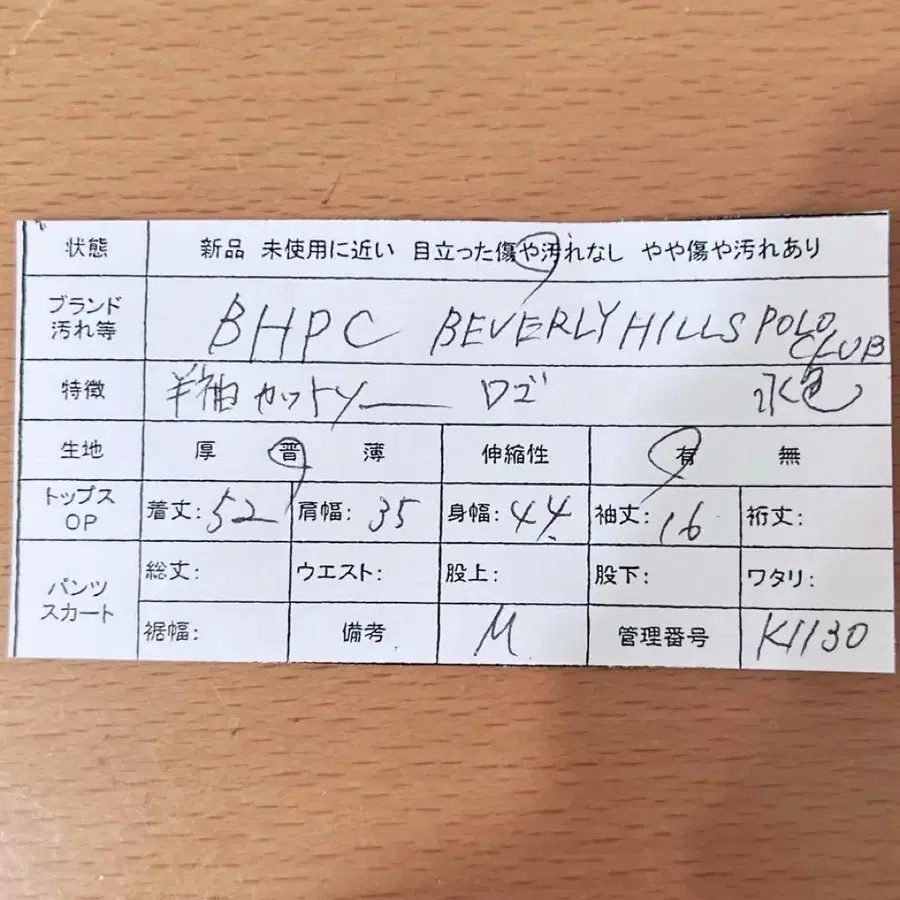 状態 新品 未使用に近い 目立った傷や汚れなし やや傷や汚れあり
ブランド
汚れ等
BHPC BEVERLY HILLS POLO
CLUB
特徴 半袖カットソー ロゴ 水色
生地 厚 普 薄 伸縮性 有 無
トップス
OP
着丈:52 肩幅:35 身幅:44 袖丈:16 裄丈:
パンツ
スカート
総丈: ウエスト: 股上: 股下: ワタリ:
裾幅: 備考 M 管理番号 K1130